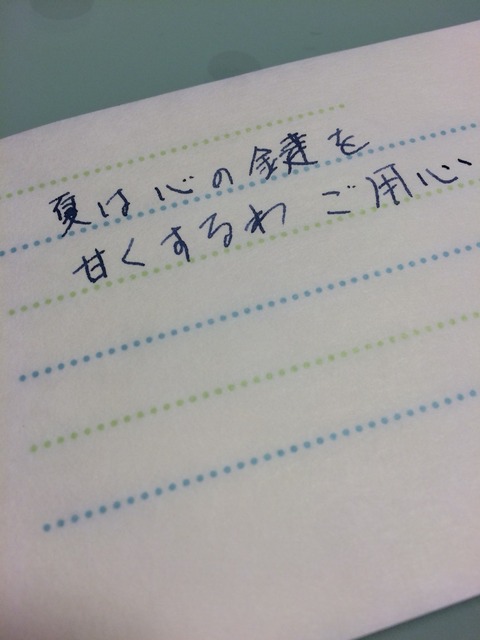 夏は心の鍵を
甘くするわ ご用心